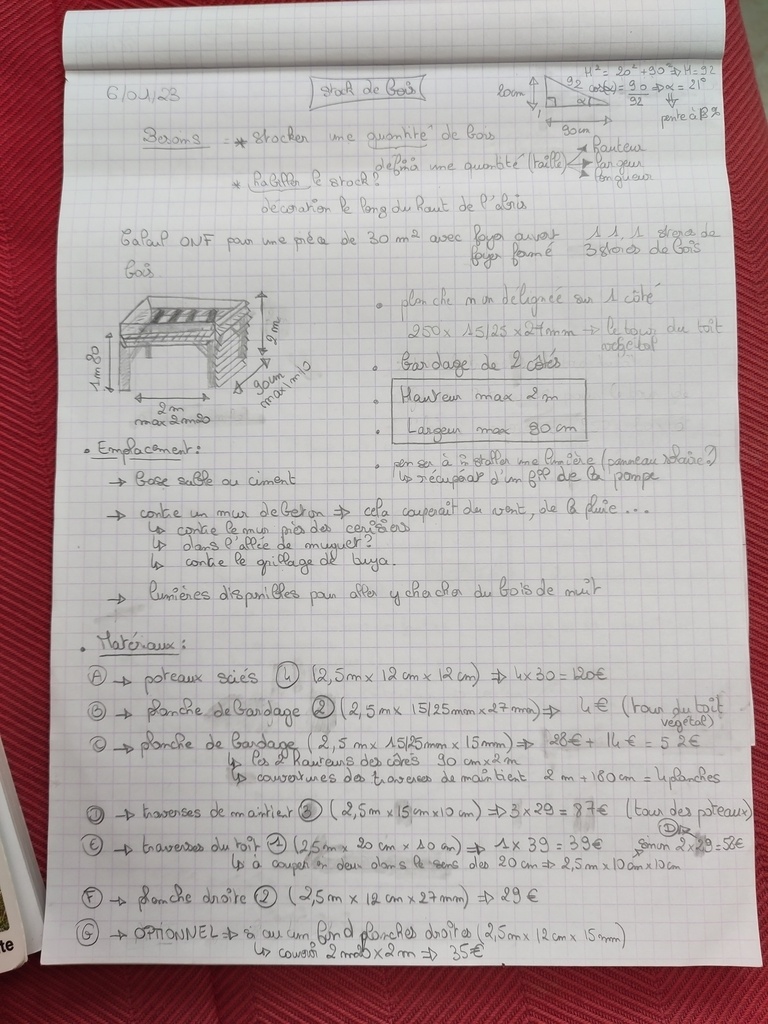 6/01/23
Stock de Bois
H² = 20² + 90² ⇒ H = 92
20cm
92
cos(α) = 90/92 ⇒ α = 21°
α
90cm
pente à %
Besoins = * stocker une quantité de bois
définir une quantité (taille) hauteur
largeur
longueur
* habiller le stock?
décoration le long du haut de l'abris
Calcul ONF pour une pièce de 30 m² avec foyer ouvert 11,1 stères de
foyer fermé 3 stères de bois
bois
1m80
2m
90cm
max 1m10
2m
max 2m20
• planche non délignée sur 1 côté
250 x 15/25 x 27mm → le tour du toit
végétal
• Bardage de 2 côtés
• Hauteur max 2m
• Largeur max 90cm
• penser à installer une lumière (panneau solaire?)
↳ récupérer d'un fil de la pompe
• Emplacement :
→ Base sable ou ciment
→ contre un mur de beton ⇒ cela couperait du vent, de la pluie...
↳ contre le mur près des cerisiers
↳ dans l'allée de muguet?
↳ contre le grillage de buya.
→ lumières disponibles pour aller y chercher du bois de nuit
• Matériaux :
Ⓐ → poteaux sciés ④ (2,5m x 12cm x 12cm) ⇒ 4x30 = 120€
Ⓑ → planche de bardage ② (2,5m x 15/25mm x 27mm) ⇒ 4€ (tour du toit
végétal)
Ⓒ → planche de Bardage (2,5m x 15/25mm x 15mm) ⇒ 28€ + 14€ = 52€
↳ les 2 hauteurs des côtés 90cm x 2m
↳ couvertures des traverses de maintient 2m + 180cm = 4 planches
Ⓓ → traverses de maintient ③ (2,5m x 15cm x 10cm) ⇒ 3x29 = 87€ (tour des poteaux)
Ⓔ → traverses du toit ① (2,5m x 20cm x 10cm) ⇒ 1x39 = 39€ sinon Ⓓ 2x29 = 58€
↳ à couper en deux dans le sens des 20cm ⇒ 2,5m x 10cm x 10cm
Ⓕ → planche droite ② (2,5m x 12cm x 27mm) ⇒ 29€
Ⓖ → OPTIONNEL ⇒ si aucun fond planches droites (2,5m x 12cm x 15mm)
↳ couvrir 2m20 x 2m ⇒ 35€
te